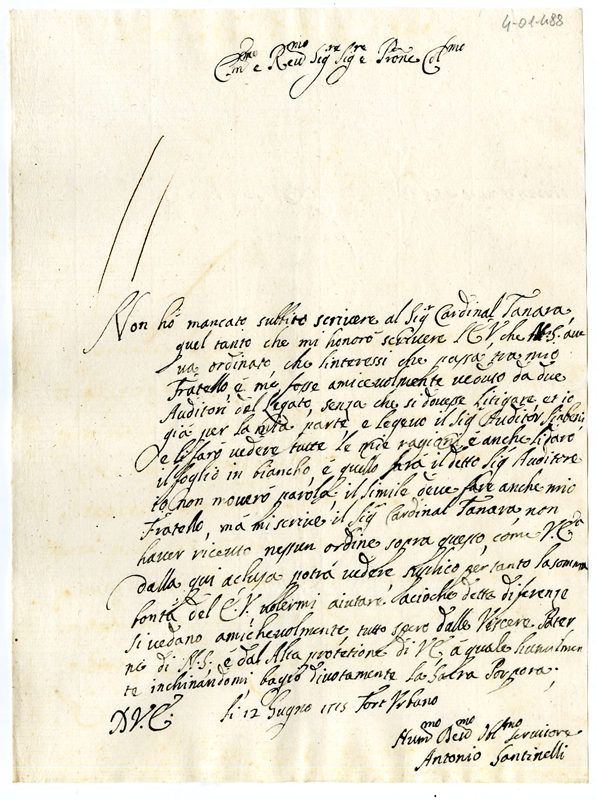 4-01-488
Em.mo e Rev.mo Sig.re Sig.re e P.rone Col.mo
Non hò mancato subbito scrivere al Sig.r Cardinal Tanara
quel tanto che mi honorò scrivere l'E.V. che N.S. ave
va ordinato, che l'interessi che passa tra mio
Fratello, e me, fosse amicevolmente veduto da due
Auditori del Legato, senza che si dovesse litigare et io
già per la mia parte elegevo il Sig. Auditor
e li farò vedere tutte le mie ragioni e anche li darò
il foglio in biancho, e quello farà il detto Sig. Auditore
Io non moverò parola, il simile deve fare anche mio
Fratello, ma mi scrive il Sig. Cardinal Tanara non
haver ricevuto nessun ordine sopra questo, come V.E.
dalla qui aclusa potrà vedere suplico per tanto la somma
bontà del E.V. volermi aiutare. acioche detta diferenze
si vedano amichevolmente, tutto spero dalle Viscere Pater
ne di N.S. e dal Alta protetione di V.E. à quale humilmen
te inchinandomi bagio divotamente la Sacra Porpora.
D.V.E. li 12 Giugno 1715 Fort Urbano
Hum.mo Dev.mo Obl.mo Servitore
Antonio Santinelli